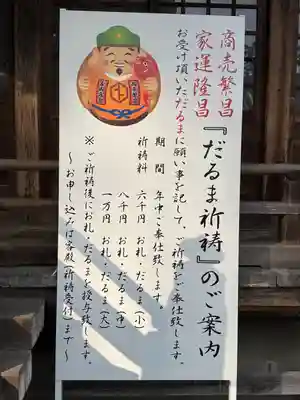 商売繁昌
家運隆昌
『だるま祈祷』のご案内
お受け頂いただるまに願い事を記して、ご祈祷をご奉仕致します。
期間　年中ご奉仕致します。
祈祷料　六千円　お札・だるま(小)
八千円　お札・だるま(中)
一万円　お札・だるま(大)
※ご祈祷後にお札・だるまを授与致します。
～お申し込みは客殿(祈祷受付)ます～